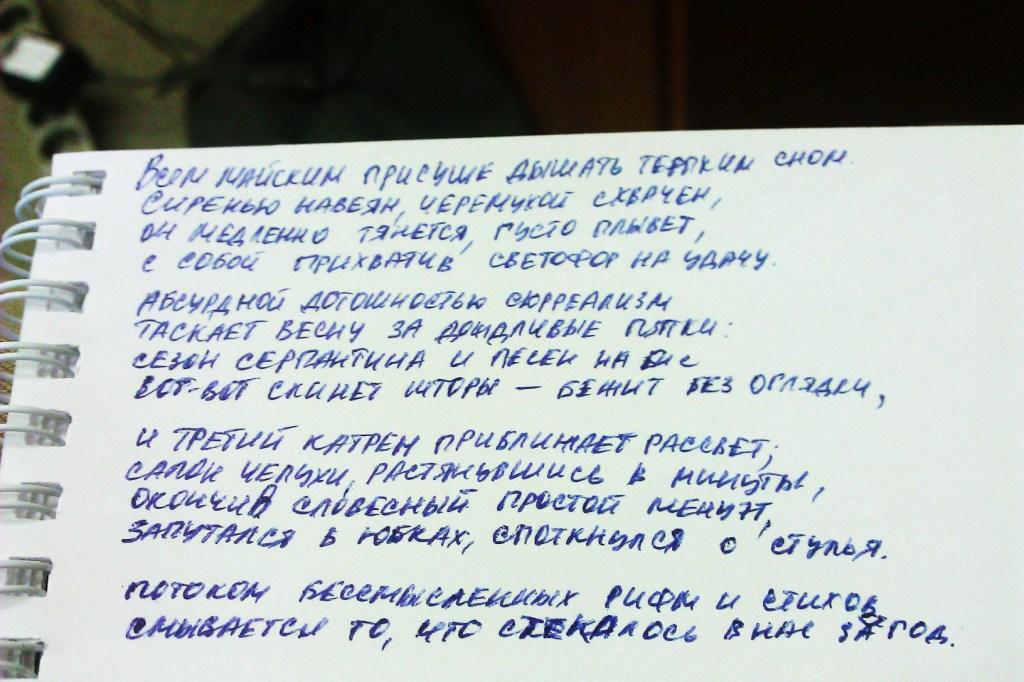 Всем майским присуще дышать терпким сном.
Сиренью навеян, черемухой схвачен,
он медленно тянется, густо плывет,
с собой прихватив светофор на удачу.
Абсурдной дотошностью сюрреализм
таскает весну за дождливые пятки:
сезон серпантина и песен на бис
вот-вот скинет шторы — бежит без оглядки,
и третий катрен приближает рассвет;
салон чепухи, растянувшись в минуты,
окончив словесный простой менуэт,
запутался в юбках, споткнулся о стулья.
потоком бессмысленных рифм и стихов
смывается то, что стекалось в нас за год.